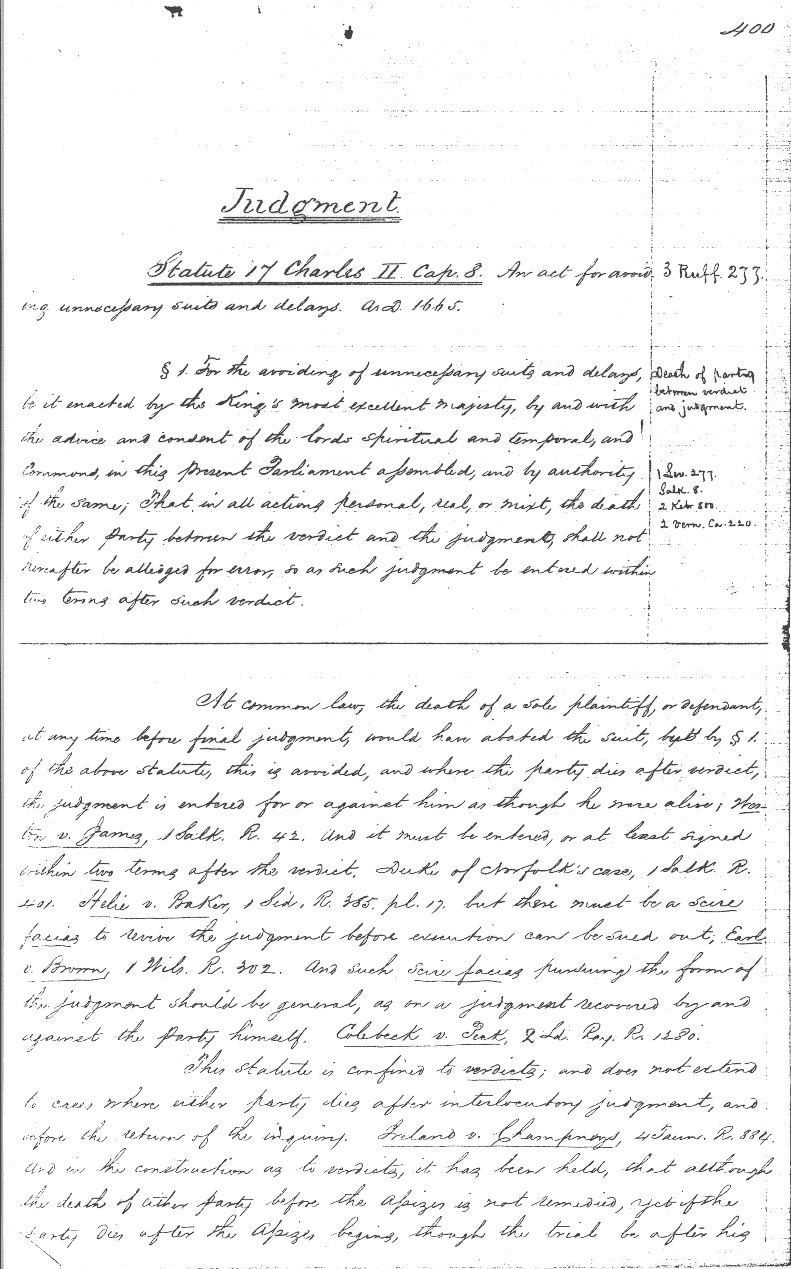 400
Judgment.
Statute 17 Charles II. Cap. 8. An act for avoid
3 Ruff. 277.
ing unnecessary suits and delays. A.D. 1665.
§ 1. For the avoiding of unnecessary suits and delays,
Death of parties
between verdict
and judgment.
be it enacted by the King's most excellent majesty, by and with
the advice and consent of the lords spiritual and temporal, and
Commons, in this present Parliament assembled, and by authority
1 Lev. 277.
of the same; That in all actions personal, real, or mixt, the death
Salk. 8.
2 Keb. 800.
2 Vern. Ca. 220.
of either party between the verdict and the judgment, shall not
hereafter be alledged for error, so as such judgment be entered within
two terms after such verdict.
At common law, the death of a sole plaintiff, or defendant,
at any time before final judgment, would have abated the suit, but by § 1.
of the above statute, this is avoided, and where the party dies after verdict,
the judgment is entered for or against him as though he were alive; Wes-
ton v. James, 1 Salk. R. 42. And it must be entered, or at least signed
within two terms after the verdict. Duke of Norfolk's case, 1 Salk. R.
401. Helie v. Baker, 1 Sid. R. 385. pl. 17. but there must be a scire
facias to revive the judgment before execution can be sued out, Earl
v. Brown, 1 Wils. R. 302. And such scire facias pursuing the form of
the judgment should be general, as on a judgment recovered by and
against the party himself. Colebeck v. Peck, 2 Ld. Ray. R. 1280.
This statute is confined to verdicts; and does not extend
to cases where either party dies after interlocutory judgment, and
before the return of the inquiry. Ireland v. Champneys, 4 Taun. R. 884.
And in the construction as to verdicts, it has been held, that although
the death of either party before the assizes is not remedied, yet if the
party dies after the assizes begins, though the trial be after his